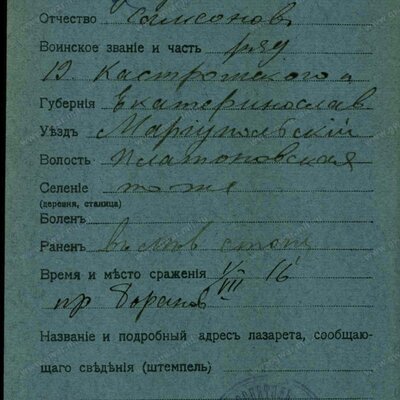 Отчество Самсонов
Воинское званіе и часть ряд
19. Костромского п
Губернія Екатеринослав
Уѣздъ Маріупольскій
Волость Платоновская
Селеніе тоже
(деревня, станица)
Боленъ
Раненъ въ
Время и мѣсто сраженія 1/VII 16
пр
Названіе и подробный адресъ лазарета, сообщаю-
щаго свѣдѣнія (штемпель)